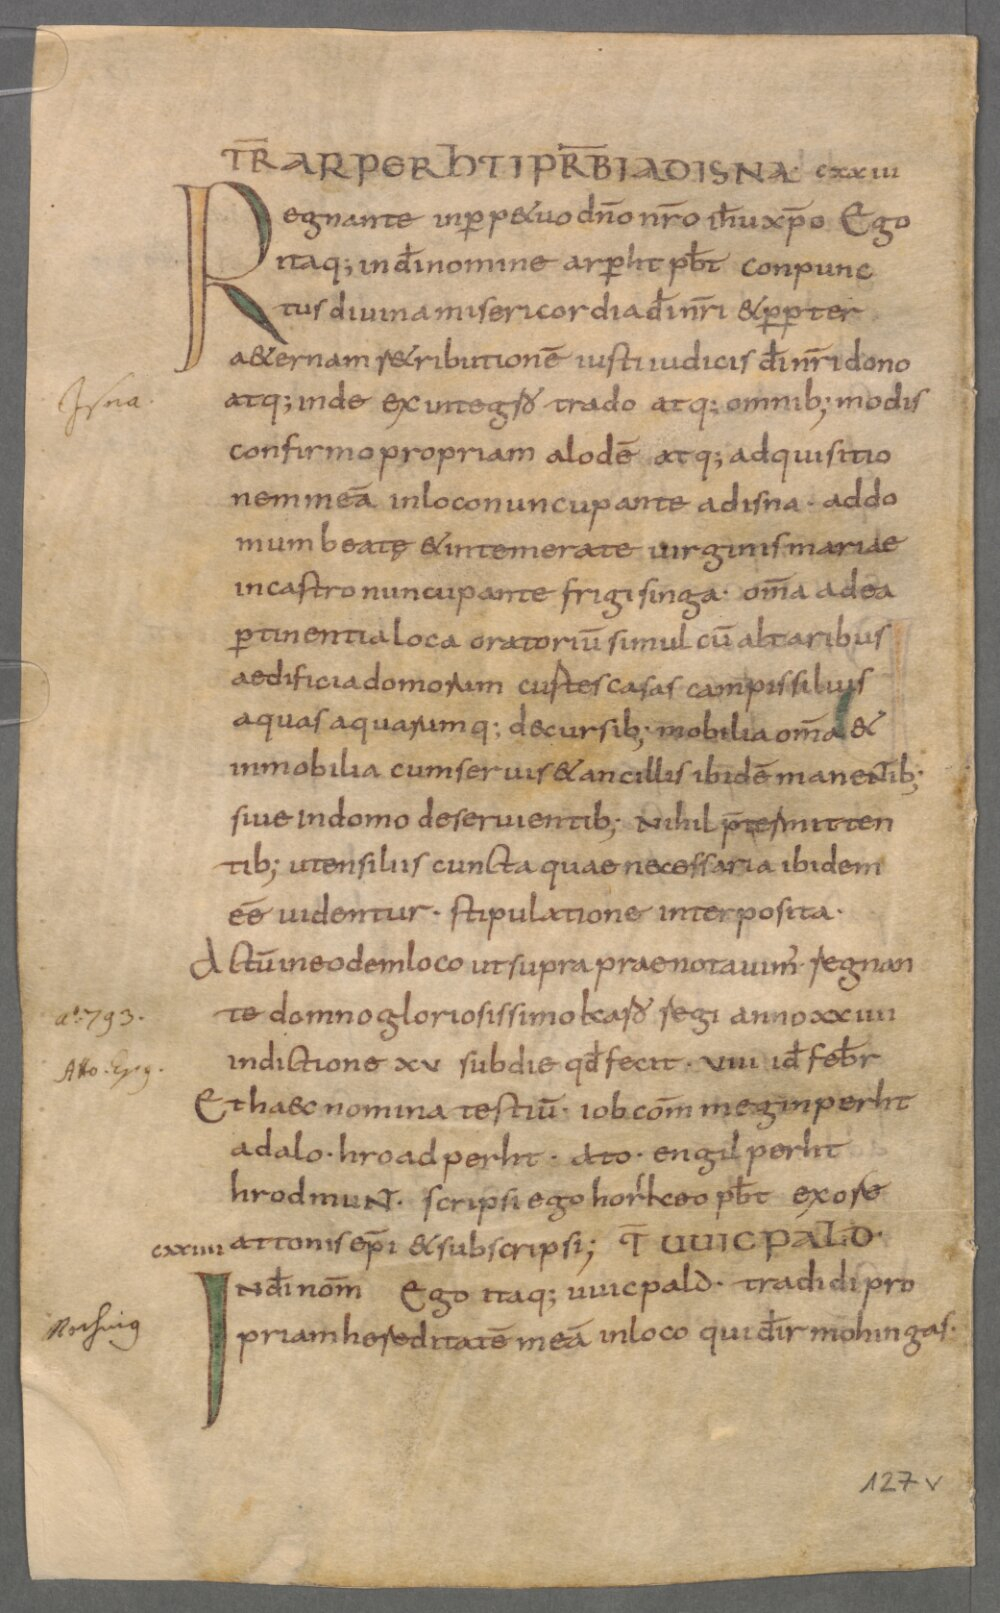 TR̄ ARPERHTI PR̄BI AD ISNA· cxxiii
Regnante in perp&uo dn̄o nr̄o ih̄u xp̄o Ego
itaq; in dī nomine arperht pb̄t conpunc
tus diuina misericordia dī nr̄i & propter
a&ernam r&ributionē iusti iudicis dī nr̄i dono
Isna.
atq; inde ex integro trado atq; omnib; modis
confirmo propriam alodē atq; adquisitio
nem meā in loco nuncupante ad isna· ad do
mum beatę & intemerate uirginis mariae
in castro nuncupante frigisinga· om̄a ad ea
p̱tinentia loca oratoriū simul cū altaribus
aedificia domorum custes casas campis siluis
aquas aquarumq; decursib; mobilia om̄a &
inmobilia cum seruis & ancillis ibidē manentib;
siue in domo deseruientib; Nihil p̄termitten
tib; utensiliis cuncta quae necessaria ibidem
eē uidentur· stipulatione interposita·
Actū in eodem loco ut supra praenotauim̄ regnan
a.° 793.
te domno gloriosissimo karo regi anno xxiiii
Atto. Epg.
indictione xv sub die qđ fecit· viii iđ feb̄r
Et haec nomina testiū· iob com̄ meginperht
adalo· hroadperht· ato· engilperht
hrodmunt· scripsi ego horskeo pb̄t ex ore
cxxiiii attonis ep̄i & subscripsi; T̄ UUICPALD·
In dī nom̄ Ego itaq; uuicpald· tradidi pro
priam hereditatē meā in loco qui dr̄ mohingas·
127 v